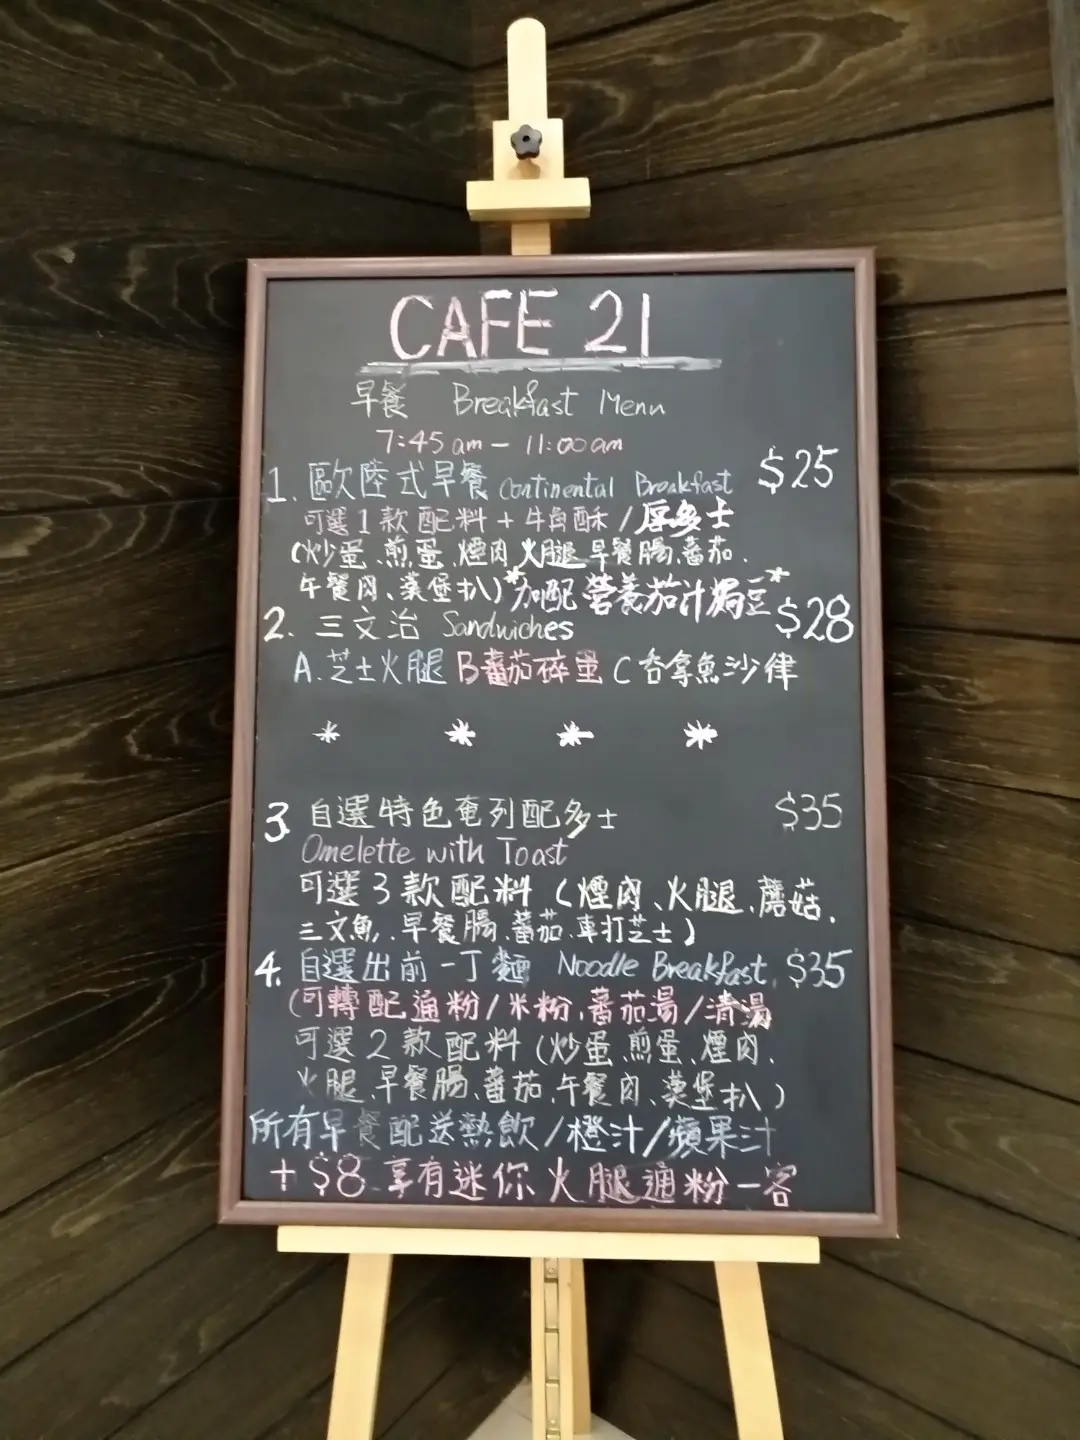 CAFE 21
早餐 Breakfast Menu
7:45am - 11:00am
1. 歐陸式早餐 Continental Breakfast $25
可選1款配料+牛角酥/厚多士
(炒蛋、煎蛋、煙肉、火腿、早餐腸、蕃茄、
午餐肉、漢堡扒)*加配營養茄汁焗豆*
2. 三文治 Sandwiches $28
A.芝士火腿 B蕃茄碎蛋 C吞拿魚沙律
* * * *
3 自選特色奄列配多士 $35
Omelette with Toast
可選3款配料(煙肉、火腿、蘑菇、
三文魚、早餐腸、蕃茄、車打芝士)
4. 自選出前一丁麵 Noodle Breakfast. $35
(可轉配通粉/米粉,蕃茄湯/清湯
可選2款配料(炒蛋、煎蛋、煙肉、
火腿、早餐腸、蕃茄、午餐肉、漢堡扒)
所有早餐配送熱飲/橙汁/蘋果汁
+$8 享有迷你火腿通粉一客